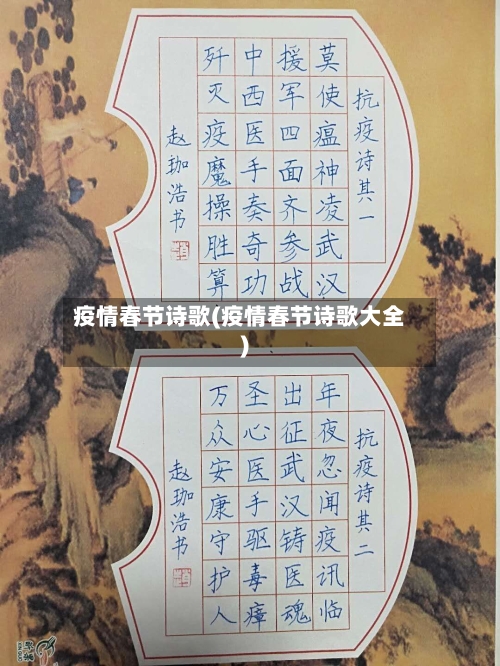 抗疫诗其一
莫使瘟神凌武汉
援军四面齐参战
中西医手奏奇功
歼灭疫魔操胜算
赵珈浩书
疫情春节诗歌(疫情春节诗歌大全
)
抗疫诗其二
年夜忽闻疫讯临
出征武汉铸医魂
圣心医手驱毒瘴
万众安康守护人
赵珈浩书